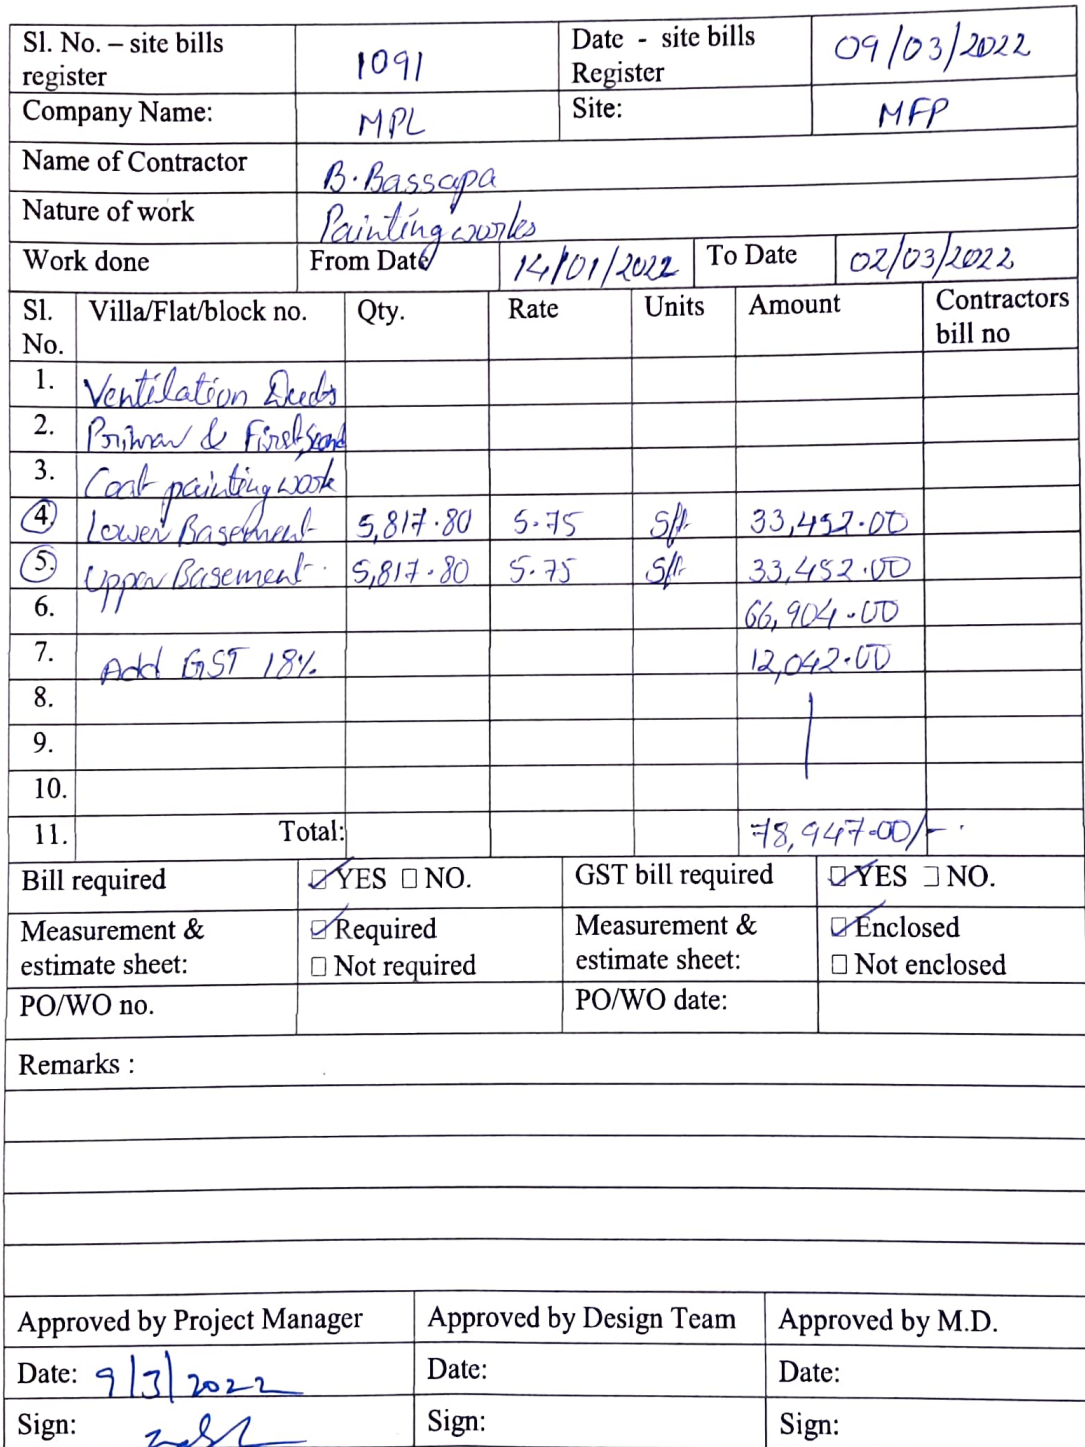 Sl. No. – site bills register 1091 Date - site bills Register 09/03/2022
Company Name: MPL Site: MFP
Name of Contractor B. Bassapa
Nature of work Painting works
Work done From Date 14/01/2022 To Date 02/03/2022
Sl. No. Villa/Flat/block no. Qty. Rate Units Amount Contractors bill no
1. Ventilation Ducts
2. Primar & First, Second
3. Coat painting work
4. Lower Basement 5,817.80 5.75 Sft 33,452.00
5. Upper Basement 5,817.80 5.75 Sft 33,452.00
6. 66,904.00
7. Add GST 18% 12,042.00
8.
9.
10.
11. Total: 78,947.00/-
Bill required YES NO. GST bill required YES NO.
Measurement & estimate sheet: Required Not required Measurement & estimate sheet: Enclosed Not enclosed
PO/WO no. PO/WO date:
Remarks :
Approved by Project Manager Approved by Design Team Approved by M.D.
Date: 9/3/2022 Date: Date:
Sign: Sign: Sign: